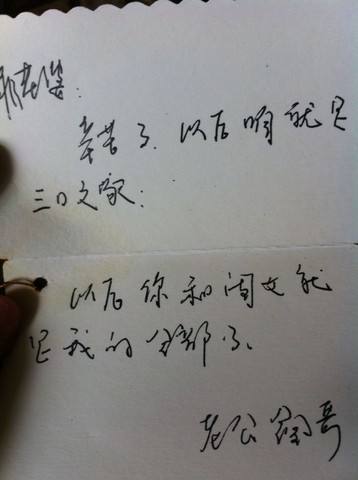 老婆:
辛苦了. 以后咱就是
三口之家:
以后你和闺女就
是我的全部了.
老公 哥